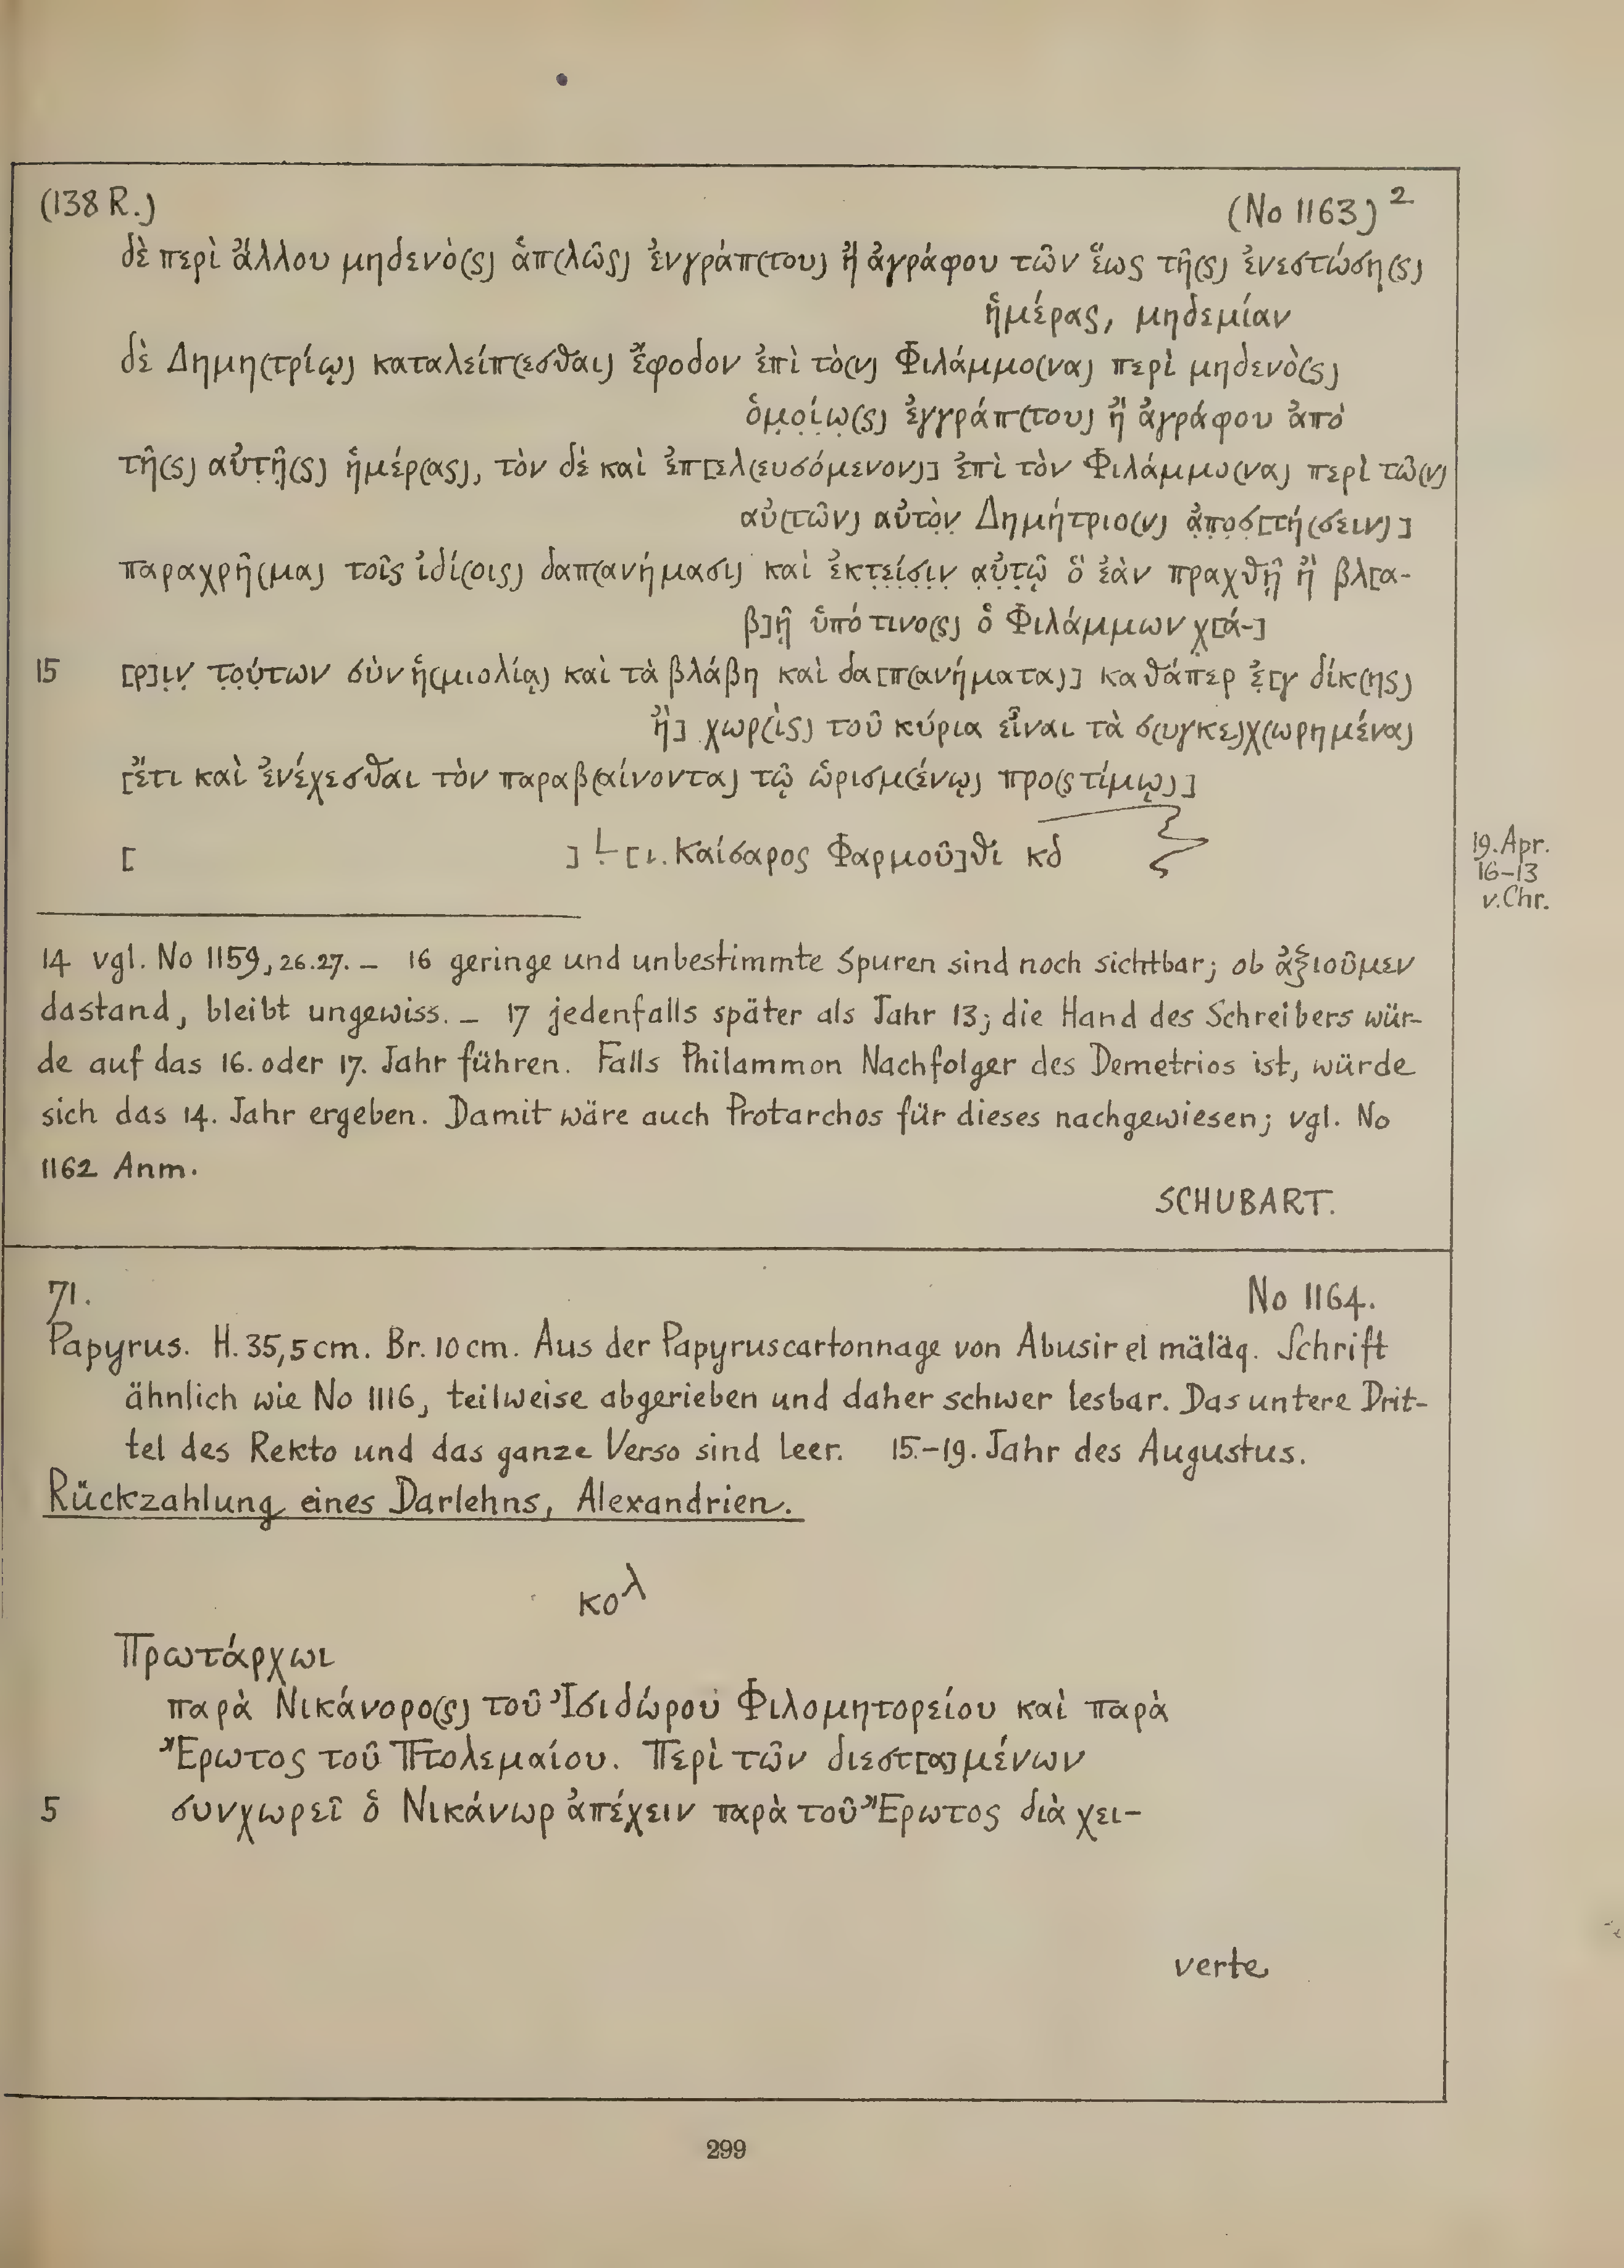 (138 R.) (No 1163)²
δὲ περὶ ἄλλου μηδενὸ(ς) ἁπ(λῶς) ἐνγράπ(του) ἢ ἀγράφου τῶν ἕως τῆ(ς) ἐνεστώση(ς)
ἡμέρας, μηδεμίαν
δὲ Δημη(τρίῳ) καταλείπ(εσθαι) ἔφοδον ἐπὶ τὸ(ν) Φιλάμμο(να) περὶ μηδενὸ(ς)
ὁμ̣ο̣ί̣ω̣(ς) ἐγγράπ(του) ἢ ἀγράφου ἀπὸ
τῆ(ς) αὐτ̣ῆ̣(ς) ἡμέρ(ας), τὸν δὲ καὶ ἐπ[ελ(ευσόμενον)] ἐπὶ τὸν Φιλάμμο(να) περὶ τῶ(ν)
αὐ(τῶν) αὐτὸ̣ν̣ Δημήτριο(ν) ἀ̣π̣ο̣σ̣[τή(σειν)]
παραχρῆ(μα) τοῖς ἰδί(οις) δαπ(ανήμασι) καὶ ἐκτ̣ε̣ί̣σ̣ι̣ν̣ α̣ὐ̣τ̣ῷ̣ ὃ ἐὰν πραχθῇ ἢ βλ[α-
β]ῇ ὑπό τινο(ς) ὁ Φιλάμμων χ̣[ά-]
15 [ρ]ι̣ν̣ τ̣ο̣ύ̣των σὺν ἡ(μιολίᾳ) καὶ τὰ βλάβη καὶ δα[π(ανήματα)] καθάπερ ἐ̣[γ δίκ(ης)
ἢ] χωρ(ὶς) τοῦ κύρια εἶναι τὰ σ(υγκε)χ(ωρημένα)
[ἔτι καὶ ἐνέχεσθαι τὸν παραβ(αίνοντα) τῷ ὡρισμ(ένῳ) προ(ςτίμῳ)]
[ ] L [ι. Καίσαρος Φαρμοῦ]θι κδ
19. Apr.
16-13
v. Chr.
14 vgl. No 1159, 26.27. – 16 geringe und unbestimmte Spuren sind noch sichtbar; ob ἀξιοῦμεν
dastand, bleibt ungewiss. – 17 jedenfalls später als Jahr 13; die Hand des Schreibers wür-
de auf das 16. oder 17. Jahr führen. Falls Philammon Nachfolger des Demetrios ist, würde
sich das 14. Jahr ergeben. Damit wäre auch Protarchos für dieses nachgewiesen; vgl. No
1162 Anm.
SCHUBART.
71. No 1164.
Papyrus. H. 35,5 cm. Br. 10 cm. Aus der Papyruscartonnage von Abusir el mäläq. Schrift
ähnlich wie No 1116, teilweise abgerieben und daher schwer lesbar. Das untere Drit-
tel des Rekto und das ganze Verso sind leer. 15.-19. Jahr des Augustus.
Rückzahlung eines Darlehns, Alexandrien.
κολ
Πρωτάρχωι
παρὰ Νικάνορο(ς) τοῦ Ἰσιδώρου Φιλομητορείου καὶ παρὰ
Ἔρωτος τοῦ Πτολεμαίου. Περὶ τῶν διεστ[α]μένων
5 συνχωρεῖ ὁ Νικάνωρ ἀπέχειν παρὰ τοῦ Ἔρωτος διὰ χει-
verte
299